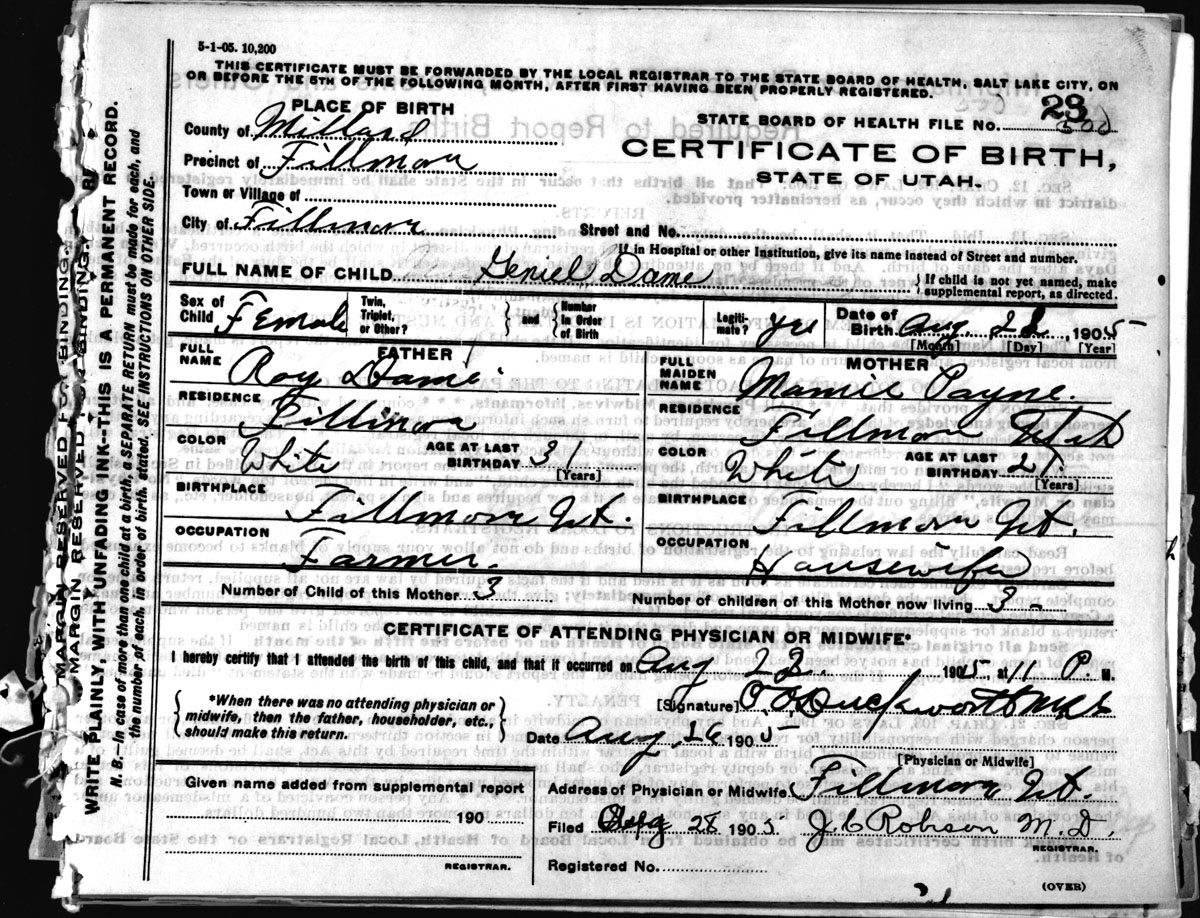 5-1-05. 10,200
THIS CERTIFICATE MUST BE FORWARDED BY THE LOCAL REGISTRAR TO THE STATE BOARD OF HEALTH, SALT LAKE CITY, ON
OR BEFORE THE 5TH OF THE FOLLOWING MONTH, AFTER FIRST HAVING BEEN PROPERLY REGISTERED.
PLACE OF BIRTH
County of Millard
Precinct of Fillmore
Town or Village of
City of Fillmore
STATE BOARD OF HEALTH FILE NO. 23
CERTIFICATE OF BIRTH,
STATE OF UTAH.
Street and No.
If in Hospital or other Institution, give its name instead of Street and number.
FULL NAME OF CHILD Geniel Dame
If child is not yet named, make
supplemental report, as directed.
Sex of Child Female
Twin, Triplet, or Other?
and
Number in Order of Birth
Legiti-mate? yes
Date of Birth Aug 22, 1905
[Month] [Day] [Year]
FATHER
FULL NAME Roy Dame
RESIDENCE Fillmore
COLOR White
AGE AT LAST BIRTHDAY 31
[Years]
BIRTHPLACE Fillmore Ut.
OCCUPATION Farmer.
MOTHER
FULL MAIDEN NAME Mamie Payne.
RESIDENCE Fillmore Utah
COLOR White
AGE AT LAST BIRTHDAY
[Years]
BIRTHPLACE Fillmore Ut.
OCCUPATION Housewife
Number of Child of this Mother 3
Number of children of this Mother now living 3
CERTIFICATE OF ATTENDING PHYSICIAN OR MIDWIFE*
I hereby certify that I attended the birth of this child, and that it occurred on Aug 22. 1905, at 11 P. M.
*When there was no attending physician or
midwife, then the father, householder, etc.,
should make this return.
[Signature] Duckworth
Date Aug 1905
[Physician or Midwife]
Given name added from supplemental report
190
REGISTRAR.
Address of Physician or Midwife Fillmore Ut.
Filed Aug 28 1905. J C Robison M.D.
REGISTRAR.
Registered No.
(OVER)
MARGIN RESERVED FOR BINDING.
MARGIN RESERVED FOR BINDING.
WRITE PLAINLY, WITH UNFADING INK--THIS IS A PERMANENT RECORD.
N. B.—In case of more than one child at a birth, a SEPARATE RETURN must be made for each, and
the number of each, in order of birth, stated. SEE INSTRUCTIONS ON OTHER SIDE.